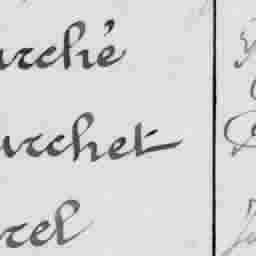 urché
urchet
rcel